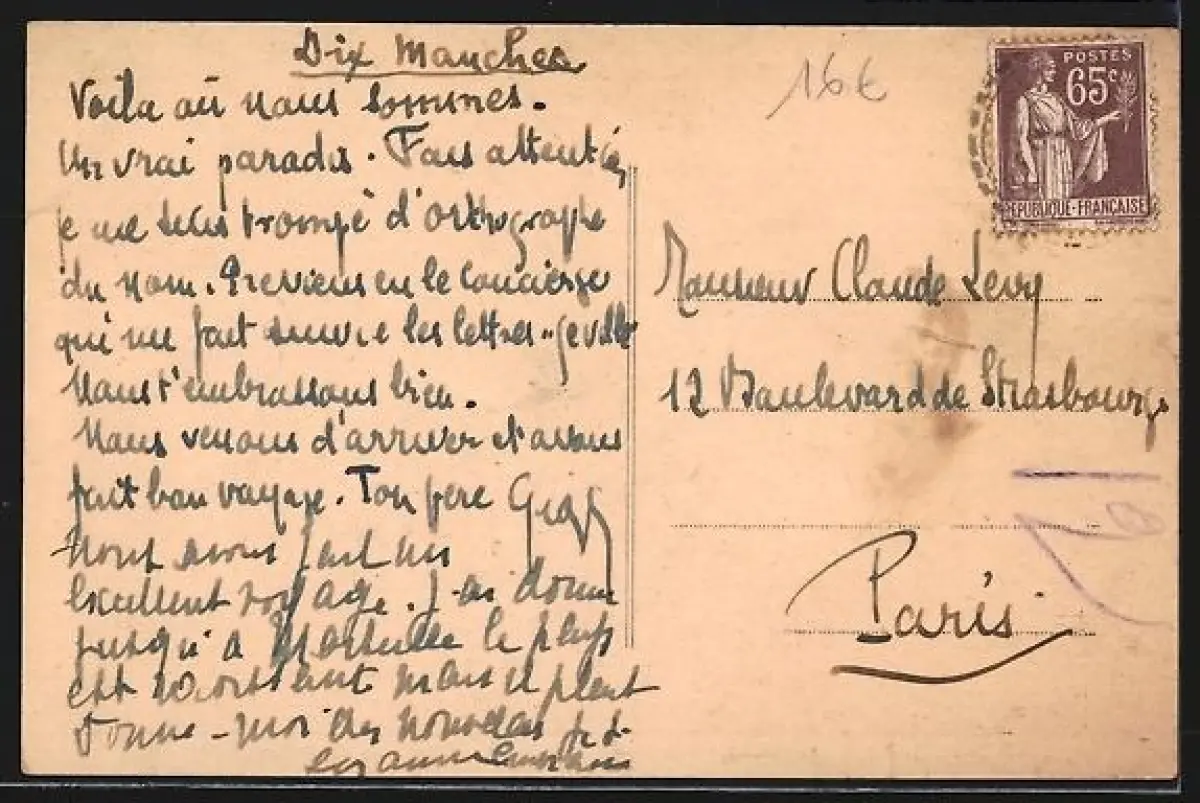 Dix Manches
Voila où nous sommes.
Un vrai paradis. Fais attention,
je me suis trompé d'orthographe
du nom. Previens en le concierge
qui me fait suivre les lettres
Nous t'embrassons bien.
Nous venons d'arriver et avons
fait bon voyage. Ton père
Nous avons fait un
excellent voyage. J-ai
jusqu'à Marseille le pays
est ravissant mais il pleut
Donne-moi des nouvelles
16€
POSTES
65c
REPUBLIQUE-FRANÇAISE
Monsieur Claude Levy
12 Boulevard de Strasbourg
Paris